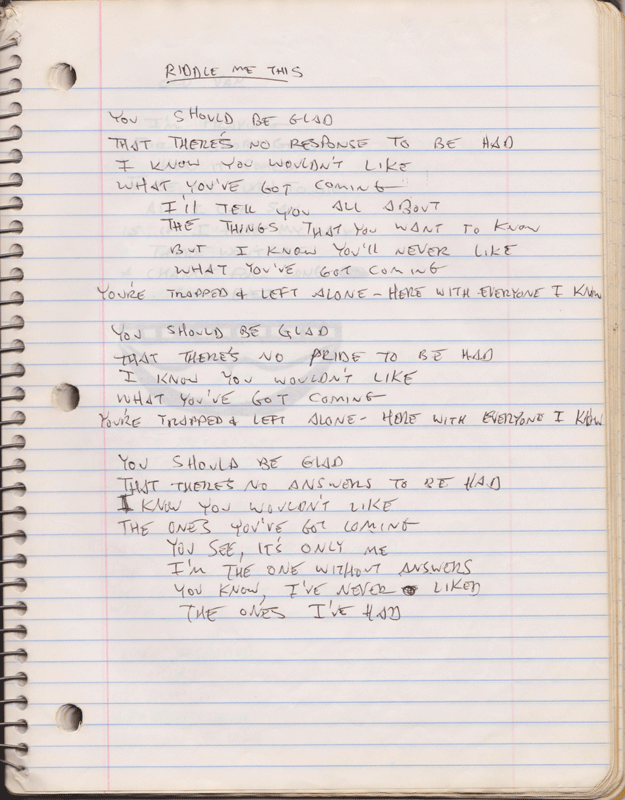 RIDDLE ME THIS
YOU SHOULD BE GLAD
THAT THERE'S NO RESPONSE TO BE HAD
I KNOW YOU WOULDN'T LIKE
WHAT YOU'VE GOT COMING
I'll TELL YOU ALL ABOUT
THE THINGS THAT YOU WANT TO KNOW
BUT I KNOW YOU'll NEVER LIKE
WHAT YOU'VE GOT COMING
YOU'RE TRAPPED & LEFT ALONE - HERE WITH EVERYONE I KNOW
YOU SHOULD BE GLAD
THAT THERE'S NO PRIDE TO BE HAD
I KNOW YOU WOULDN'T LIKE
WHAT YOU'VE GOT COMING
YOU'RE TRAPPED & LEFT ALONE - HERE WITH EVERYONE I KNOW
YOU SHOULD BE GLAD
THAT THERE'S NO ANSWERS TO BE HAD
I KNOW YOU WOULDN'T LIKE
THE ONES YOU'VE GOT COMING
YOU SEE, IT'S ONLY ME
I'M THE ONE WITHOUT ANSWERS
YOU KNOW, I'VE NEVER LIKED
THE ONES I'VE HAD